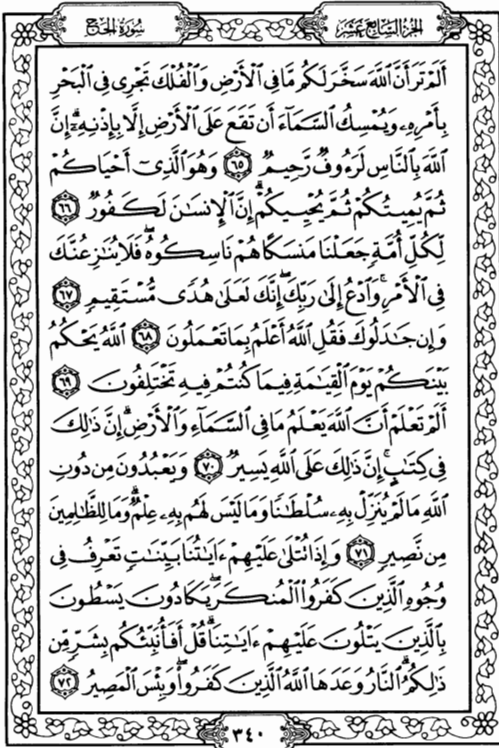 الجزء السابع عشر
سورة الحج
أَلَمْ تَرَ أَنَّ ٱللَّهَ سَخَّرَ لَكُم مَّا فِى ٱلْأَرْضِ وَٱلْفُلْكَ تَجْرِى فِى ٱلْبَحْرِ
بِأَمْرِهِۦ وَيُمْسِكُ ٱلسَّمَآءَ أَن تَقَعَ عَلَى ٱلْأَرْضِ إِلَّا بِإِذْنِهِۦٓ ۗ إِنَّ
ٱللَّهَ بِٱلنَّاسِ لَرَءُوفٌ رَّحِيمٌ ٦٥ وَهُوَ ٱلَّذِىٓ أَحْيَاكُمْ
ثُمَّ يُمِيتُكُمْ ثُمَّ يُحْيِيكُمْ ۗ إِنَّ ٱلْإِنسَـٰنَ لَكَفُورٌ ٦٦
لِّكُلِّ أُمَّةٍ جَعَلْنَا مَنسَكًا هُمْ نَاسِكُوهُ ۖ فَلَا يُنَـٰزِعُنَّكَ
فِى ٱلْأَمْرِ ۚ وَٱدْعُ إِلَىٰ رَبِّكَ ۖ إِنَّكَ لَعَلَىٰ هُدًى مُّسْتَقِيمٍ ٦٧
وَإِن جَـٰدَلُوكَ فَقُلِ ٱللَّهُ أَعْلَمُ بِمَا تَعْمَلُونَ ٦٨ ٱللَّهُ يَحْكُمُ
بَيْنَكُمْ يَوْمَ ٱلْقِيَـٰمَةِ فِيمَا كُنتُمْ فِيهِ تَخْتَلِفُونَ ٦٩
أَلَمْ تَعْلَمْ أَنَّ ٱللَّهَ يَعْلَمُ مَا فِى ٱلسَّمَآءِ وَٱلْأَرْضِ ۗ إِنَّ ذَٰلِكَ
فِى كِتَـٰبٍ ۚ إِنَّ ذَٰلِكَ عَلَى ٱللَّهِ يَسِيرٌ ٧٠ وَيَعْبُدُونَ مِن دُونِ
ٱللَّهِ مَا لَمْ يُنَزِّلْ بِهِۦ سُلْطَـٰنًا وَمَا لَيْسَ لَهُم بِهِۦ عِلْمٌ ۗ وَمَا لِلظَّـٰلِمِينَ
مِن نَّصِيرٍ ٧١ وَإِذَا تُتْلَىٰ عَلَيْهِمْ ءَايَـٰتُنَا بَيِّنَـٰتٍ تَعْرِفُ فِى
وُجُوهِ ٱلَّذِينَ كَفَرُوا۟ ٱلْمُنكَرَ ۖ يَكَادُونَ يَسْطُونَ
بِٱلَّذِينَ يَتْلُونَ عَلَيْهِمْ ءَايَـٰتِنَا ۗ قُلْ أَفَأُنَبِّئُكُم بِشَرٍّ مِّن
ذَٰلِكُمُ ۗ ٱلنَّارُ وَعَدَهَا ٱللَّهُ ٱلَّذِينَ كَفَرُوا۟ ۖ وَبِئْسَ ٱلْمَصِيرُ ٧٢
٣٤٠